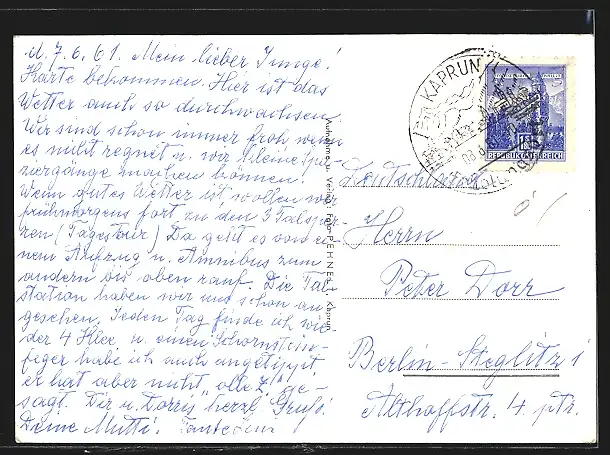 d. 7.6.61. Mein lieber Junge!
Karte bekommen. Hier ist das
Wetter auch so durchwachsen.
Wir sind schon immer froh, wenn
es nicht regnet u. wir kleine Spa-
ziergänge machen können.
Wenn gutes Wetter ist wollen wir
frühmorgens fort zu den 3 Talsper-
ren (Tagestour) Da geht es von ei-
nem Aufzug u. Omnibus zum
andern bis oben rauf. Die Tal-
station haben wir uns schon an-
gesehen. Jeden Tag finde ich wie-
der 4 Klee u. einen Schornstein-
feger habe ich auch angetippt,
er hat aber nicht "olle Z" ge-
sagt. Dir u. Dorris herzl. Gruß!
Deine Mutti. Tante
Aufnahme u. Verlag: Foto PEHNE, Kaprun
KAPRUN
REPUBLIK ÖSTERREICH
Deutschland
Herrn
Peter Dorr
Berlin-Steglitz 1
Althoffstr. 4 ptr.